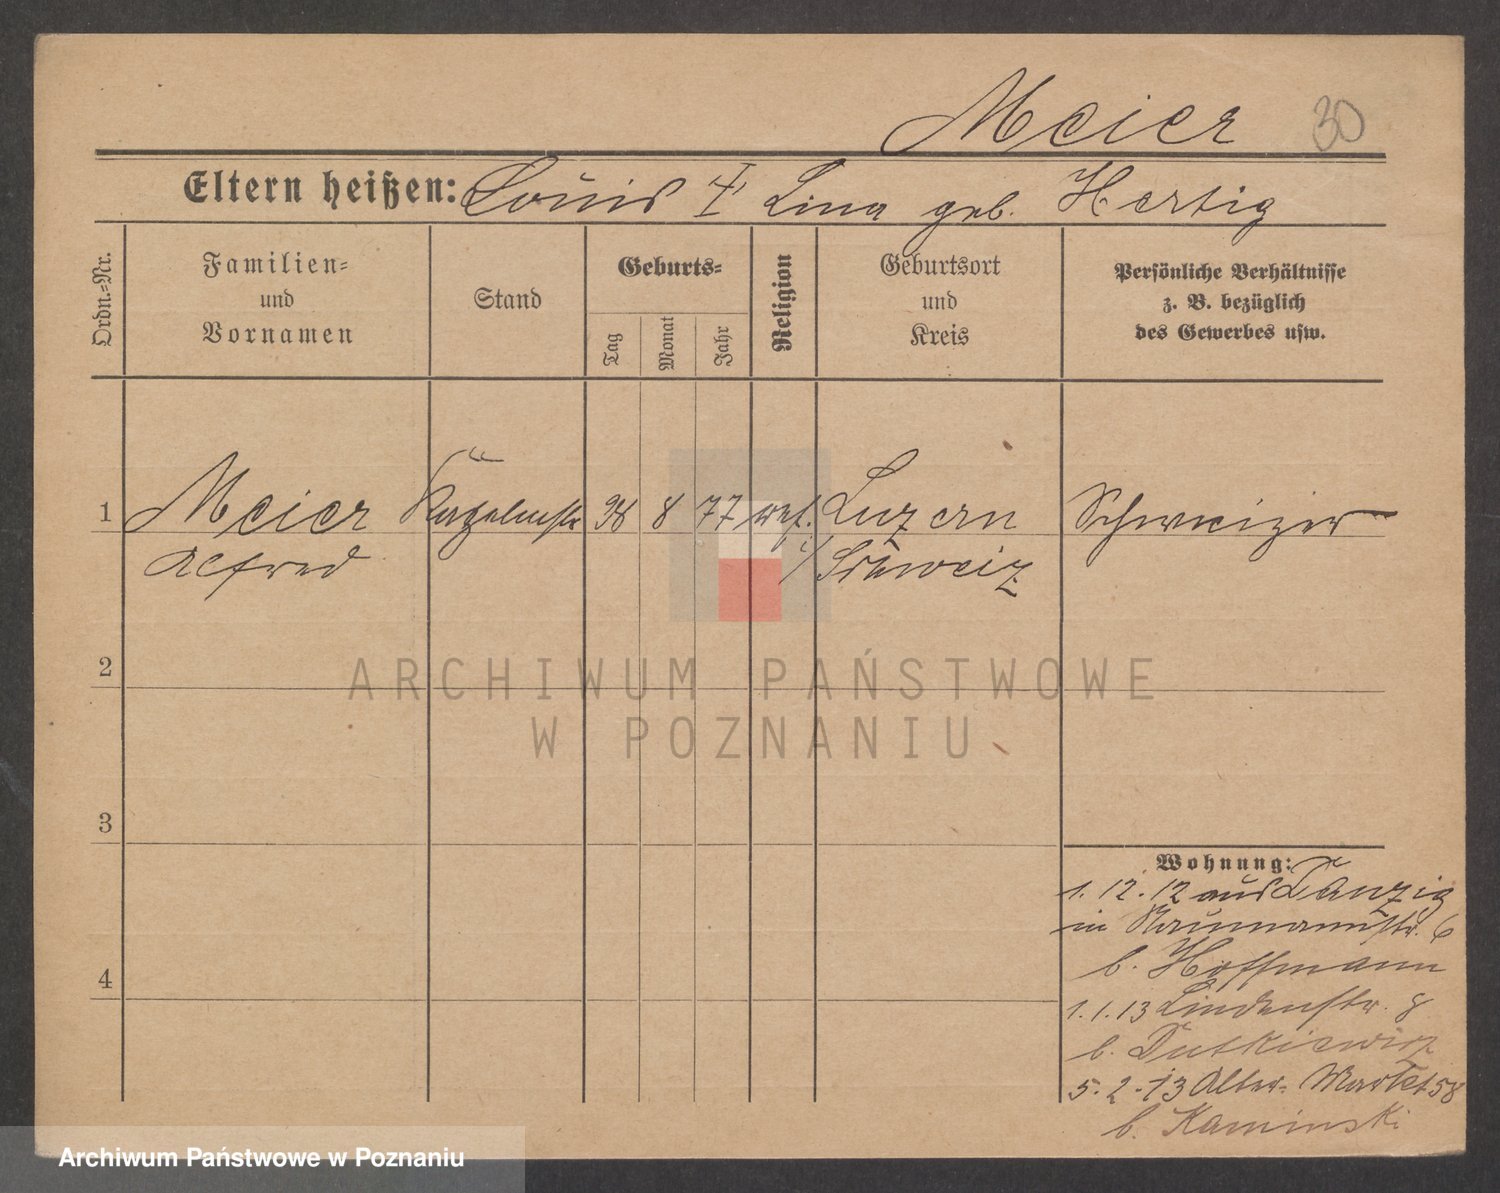 Meier 30
Eltern heißen: Louis Lina geb. Hertig
Ordn.-Nr.
Familien-
und
Vornamen
Stand
Geburts-
Tag
Monat
Jahr
Religion
Geburtsort
und
Kreis
Persönliche Verhältnisse
z. B. bezüglich
des Gewerbes usw.
1 Meier 8 77 ref. Luzern Schweizer
Alfred i/ Schweiz
2
ARCHIWUM PAŃSTWOWE
W POZNANIU
3
4
Wohnung:
1.12.12 aus Danzig
in Naumannstr. 6
b. Hoffmann
1.1.13 Lindenstr. 8
b. Dutkiewicz
5.2.13 Alter Markt 58
b. Kaminski
Archiwum Państwowe w Poznaniu